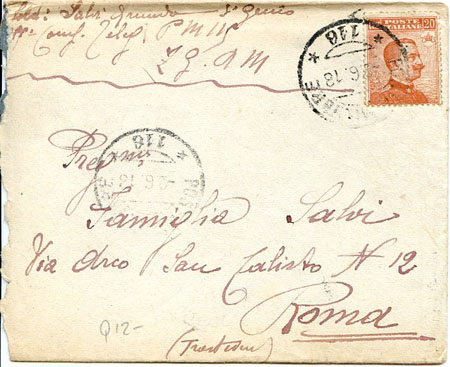 Sold: Salvi 5° Genio
Telef. P M 115
Z. g. AM
POSTE ITALIANE 20
116
-2.6.18
116
-2.6.18
Preg.ma
Famiglia Salvi
Via Arco San Calisto N 12
Roma
(Trastevere)
Q12-